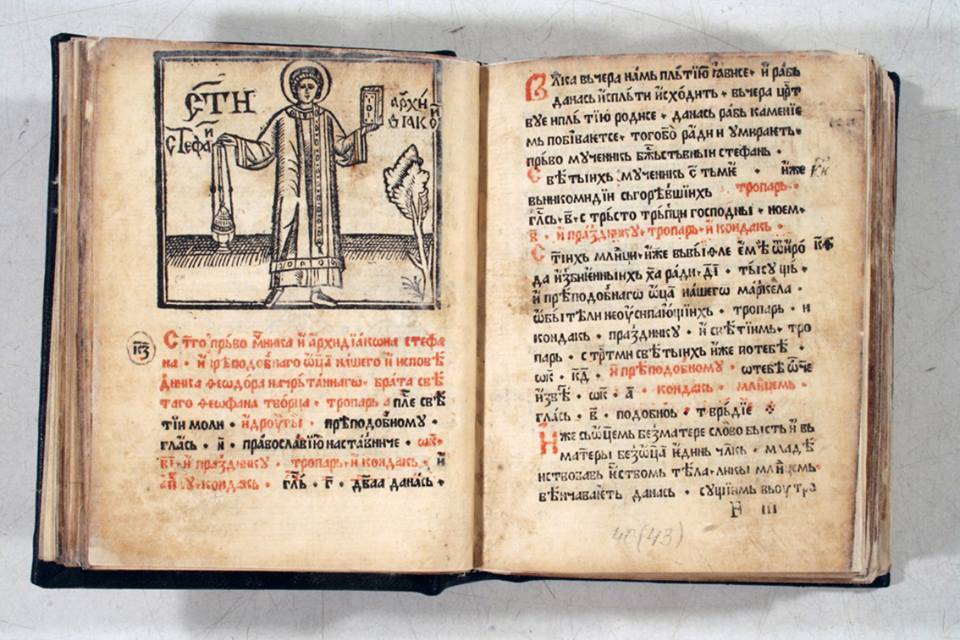 СТ҃Н
Стефан
архи
дїако
к҃з
Ст҃го пръво м҃ника и архидїакона стефа
на · и прѣподобнаго ѡц҃а нашего и исповѣ
дника ѳеодора начрътаннагѡ · брата све
таго ѳеѡфана творца · тропарь а пле свѣ
тїи моли · и дроугы · прѣподобному ·
глась · и҃ · православїю наставниче · ѡк҃ѡ·
в҃ї· и праздникꙋ · тропарь · и кондакь · и
кондакь · гл҃ь · г҃ · дв҃аа данась ·
Вл҃ка вьчера намь плътїю ꙗвисе · и рабь
данась ис пльти исходить · вьчера цр҃т
вꙋе плътїю родисе · данась рабь каменїе
мь побиваетсе · тогово ради и умираеть ·
пръво мученикь бж҃ьствьныи стефань ·
Светыихь мученикь с҃ тьмїе · иже к҃и
вь никомидїи сьгорѣвшїихь тропарь ·
гл҃сь · в҃ · стрьсто трьпци господны · ноем·
в҃ · и празднику · тропарь · и кондакь ·
Ст҃їихь мл҃нци · иже вь виѳле ѥмѣ ѿ иро к҃ѳ
да избиенныихь х҃а ради · д҃ї · тысꙋщь ·
и прѣподобнагѡ ѡц҃а нашего маркела ·
ѡбытѣли неоусипающїихь · тропарь · и
кондакь · празднику · и светїимь · тро
парь · с трт҃ми светыихь иже по тебѣ ·
ѡк҃ · к҃д · и прѣподобномꙋ · ѡ тебѣ ѿче
извѣ · ѡк҃ · а҃ · кондакь · мл҃нцемь ·
глась · в҃ · подобнь · твръдїе
Иже сь ѡц҃емь без матере слово бысть и вь
матеры без ѡц҃а и динь чл҃кь · младѣ
нствовавь нствомь тѣла · ликы мл҃нцемь·
вѣнчаваеть данась · сꙋщїимь вьоутро
40(43)